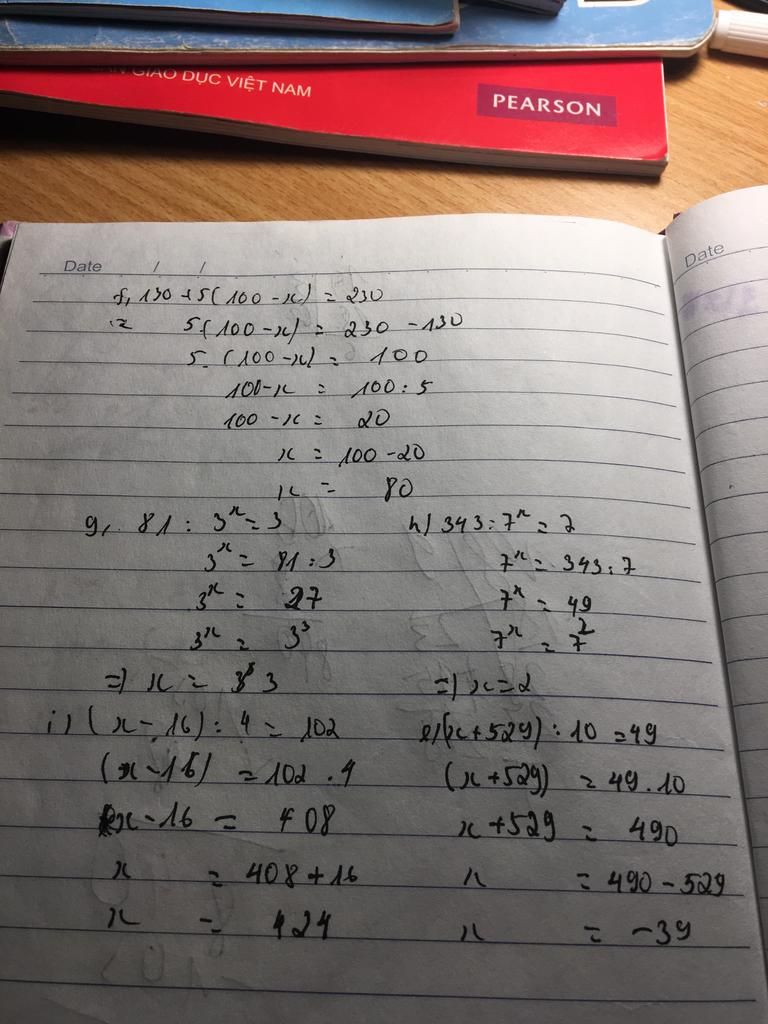 GIÁO DỤC VIỆT NAM
PEARSON
Date / /
Date
f, 130 + 5(100 - x) = 230
5.(100 - x) = 230 - 130
5. (100 - x) = 100
100 - x = 100 : 5
100 - x = 20
x = 100 - 20
x = 80
g, 81 : 3^x = 3
3^x = 81 : 3
3^x = 27
3^x = 3^3
=) x = 3
h) 343 : 7^x = 7
7^x = 343 : 7
7^x = 49
7^x = 7^2
=) x = 2
i) (x - 16) : 4 = 102
(x - 16) = 102 . 4
x - 16 = 408
x = 408 + 16
x = 424
(x + 529) : 10 = 49
(x + 529) = 49 . 10
x + 529 = 490
x = 490 - 529
x = -39